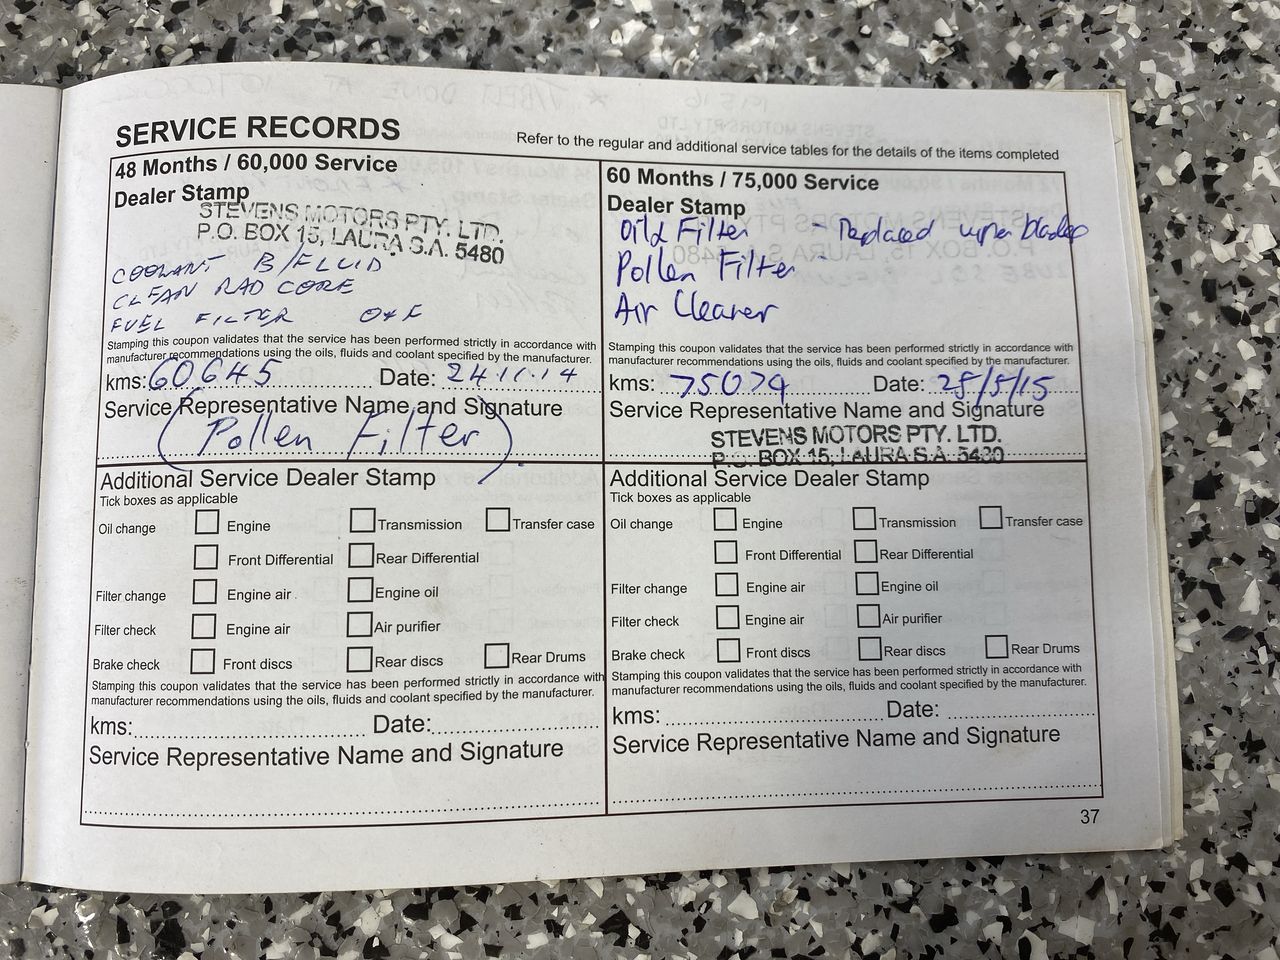 SERVICE RECORDS
Refer to the regular and additional service tables for the details of the items completed
48 Months / 60,000 Service
Dealer Stamp
STEVENS MOTORS PTY. LTD.
P.O. BOX 15, LAURA S.A. 5480
COOLANT B/FLUID
CLEAN RAD CORE
FUEL FILTER O&F
Stamping this coupon validates that the service has been performed strictly in accordance with
manufacturer recommendations using the oils, fluids and coolant specified by the manufacturer.
kms: 60645 Date: 24.11.14
Service Representative Name and Signature
(Pollen Filter)
Additional Service Dealer Stamp
Tick boxes as applicable
Oil change Engine Transmission Transfer case
Front Differential Rear Differential
Filter change Engine air Engine oil
Filter check Engine air Air purifier
Brake check Front discs Rear discs Rear Drums
Stamping this coupon validates that the service has been performed strictly in accordance with
manufacturer recommendations using the oils, fluids and coolant specified by the manufacturer.
kms: Date:
Service Representative Name and Signature
60 Months / 75,000 Service
Dealer Stamp
Oil & Filter - Replaced wiper blades
Pollen Filter -
Air Cleaner
Stamping this coupon validates that the service has been performed strictly in accordance with
manufacturer recommendations using the oils, fluids and coolant specified by the manufacturer.
kms: 75079 Date: 25/5/15
Service Representative Name and Signature
STEVENS MOTORS PTY. LTD.
P.O. BOX 15, LAURA S.A. 5480
Additional Service Dealer Stamp
Tick boxes as applicable
Oil change Engine Transmission Transfer case
Front Differential Rear Differential
Filter change Engine air Engine oil
Filter check Engine air Air purifier
Brake check Front discs Rear discs Rear Drums
Stamping this coupon validates that the service has been performed strictly in accordance with
manufacturer recommendations using the oils, fluids and coolant specified by the manufacturer.
kms: Date:
Service Representative Name and Signature
37